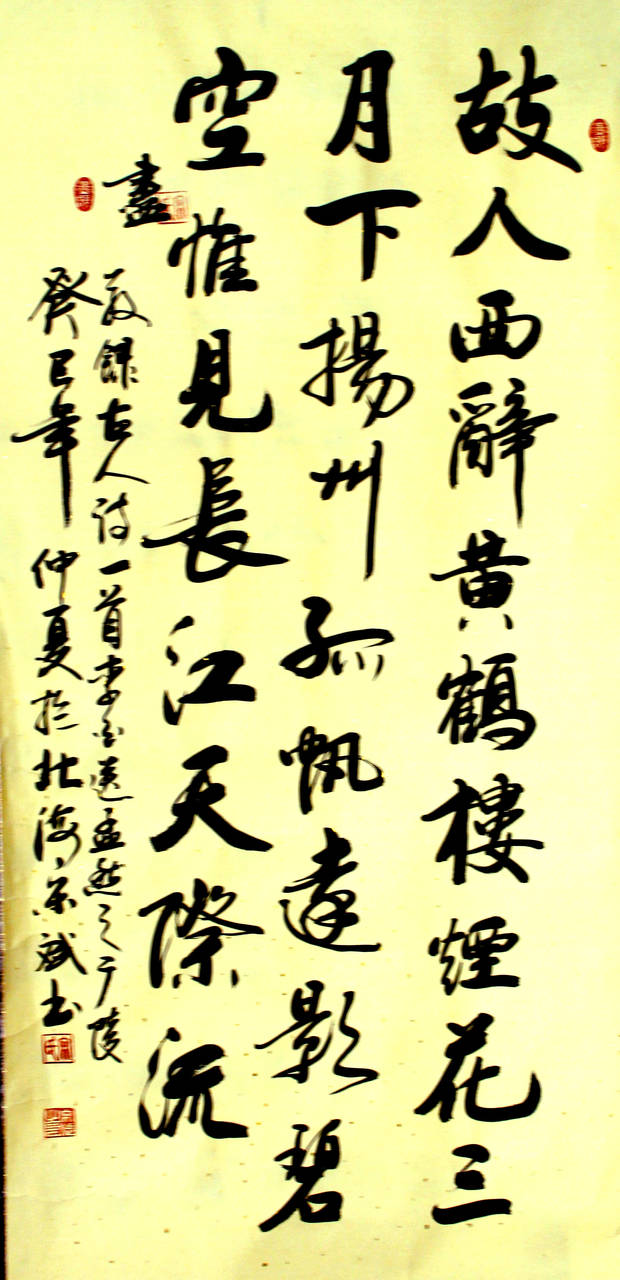 故人西辭黃鶴樓煙花三
月下揚州孤帆遠影碧
空惟見長江天際流
盡
錄古人詩一首李白送孟然之广陵
癸巳年仲夏於北海斌书